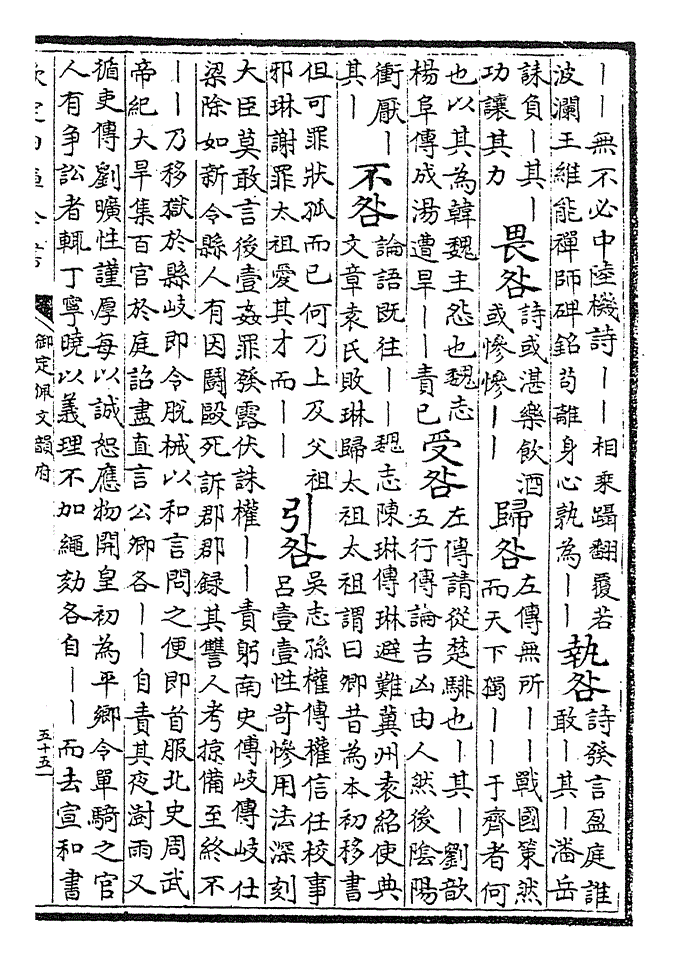 丨丨無不必中陸機詩丨丨相乘躡翻覆若
波瀾王維能禪師碑銘茍離身心孰為丨丨
執咎
詩發言盈庭誰
敢丨其丨潘岳
誄負丨其丨
功讓其力
畏咎
詩或湛樂飲酒
或慘慘丨丨
歸咎
左傳無所丨丨戰國策然
而天下獨丨丨于齊者何
也以其為韓魏主怨也魏志
楊阜傳成湯遭旱丨丨責已
受咎
左傳請從楚騑也丨其丨劉歆
五行傳論吉凶由人然後陰陽
衝厭丨
其丨
不咎
論語既往丨丨魏志陳琳傳琳避難冀州袁紹使典
文章袁氏敗琳歸太祖太祖謂曰卿昔為本初移書
但可罪狀孤而已何乃上及父祖
邪琳謝罪太祖愛其才而丨丨
引咎
吳志孫權傳權信任校事
呂壹壹性苛慘用法深刻
大臣莫敢言後壹姦罪發露伏誅權丨丨責躬南史傅岐傳岐仕
梁除如新令縣人有因鬬毆死訴郡郡録其讐人考掠備至終不
丨丨乃移獄於縣岐即令脫械以和言問之便即首服北史周武
帝紀大旱集百官於庭詔盡直言公卿各丨丨自責其夜澍雨又
循吏傳劉曠性謹厚每以誠恕應物開皇初為平鄉令單騎之官
人有争訟者輒丁寧曉以義理不加繩劾各自丨丨而去宣和書
欽定四庫全書
御定佩文韻府
五十五